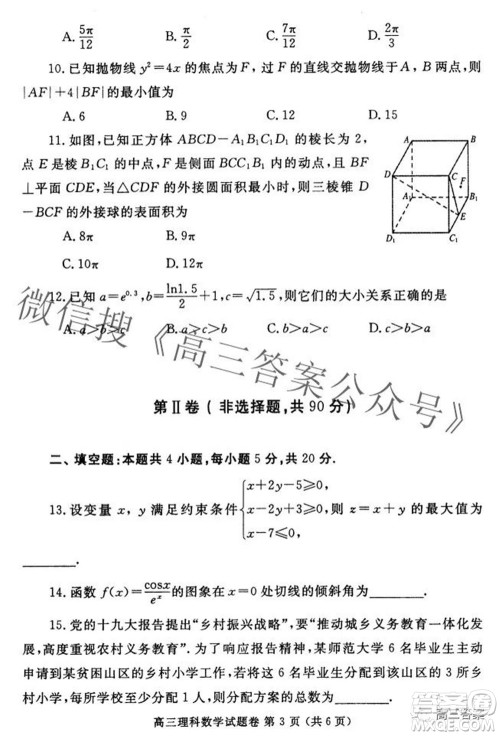 A. 5π/12 B. π/2 C. 7π/12 D. 2π/3
10. 已知抛物线 y²=4x 的焦点为 F，过 F 的直线交抛物线于 A、B 两点，则
|AF|+4|BF| 的最小值为
A. 6 B. 9 C. 12 D. 15
11. 如图，已知正方体 ABCD－A₁B₁C₁D₁ 的棱长为 2，
点 E 是棱 B₁C₁ 的中点，F 是侧面 BCC₁B₁ 内的动点，且 BF
⊥平面 CDE，当△CDF 的外接圆面积最小时，则三棱锥 D
－BCF 的外接球的表面积为
A. 8π B. 9π
C. 10π D. 12π
A B D C F A₁ B₁ E D₁ C₁
12. 已知 a=e^0.3, b=ln1.5/2+1, c=√1.5, 则它们的大小关系正确的是
A. a>b>c B. a>c>b C. b>a>c D. c>b>a
第Ⅱ卷（非选择题，共 90 分）
二、填空题：本题共 4 小题，每小题 5 分，共 20 分.
13. 设变量 x，y 满足约束条件 {x+2y－5≥0, x－2y+3≥0, x－7≤0, 则 z=x+y 的最大值为
______.
14. 函数 f(x)=cosx/eˣ 的图象在 x=0 处切线的倾斜角为______.
15. 党的十九大报告提出“乡村振兴战略”，要“推动城乡义务教育一体化发
展，高度重视农村义务教育”. 为了响应报告精神，某师范大学 6 名毕业生主动
申请到某贫困山区的乡村小学工作. 若将这 6 名毕业生分配到该山区的 3 所乡
村小学，每所学校至少分配 1 人，则分配方案的总数为______.
高三理科数学试题卷 第 3 页（共 6 页）
微信搜《高三答案公众号》
高三答案